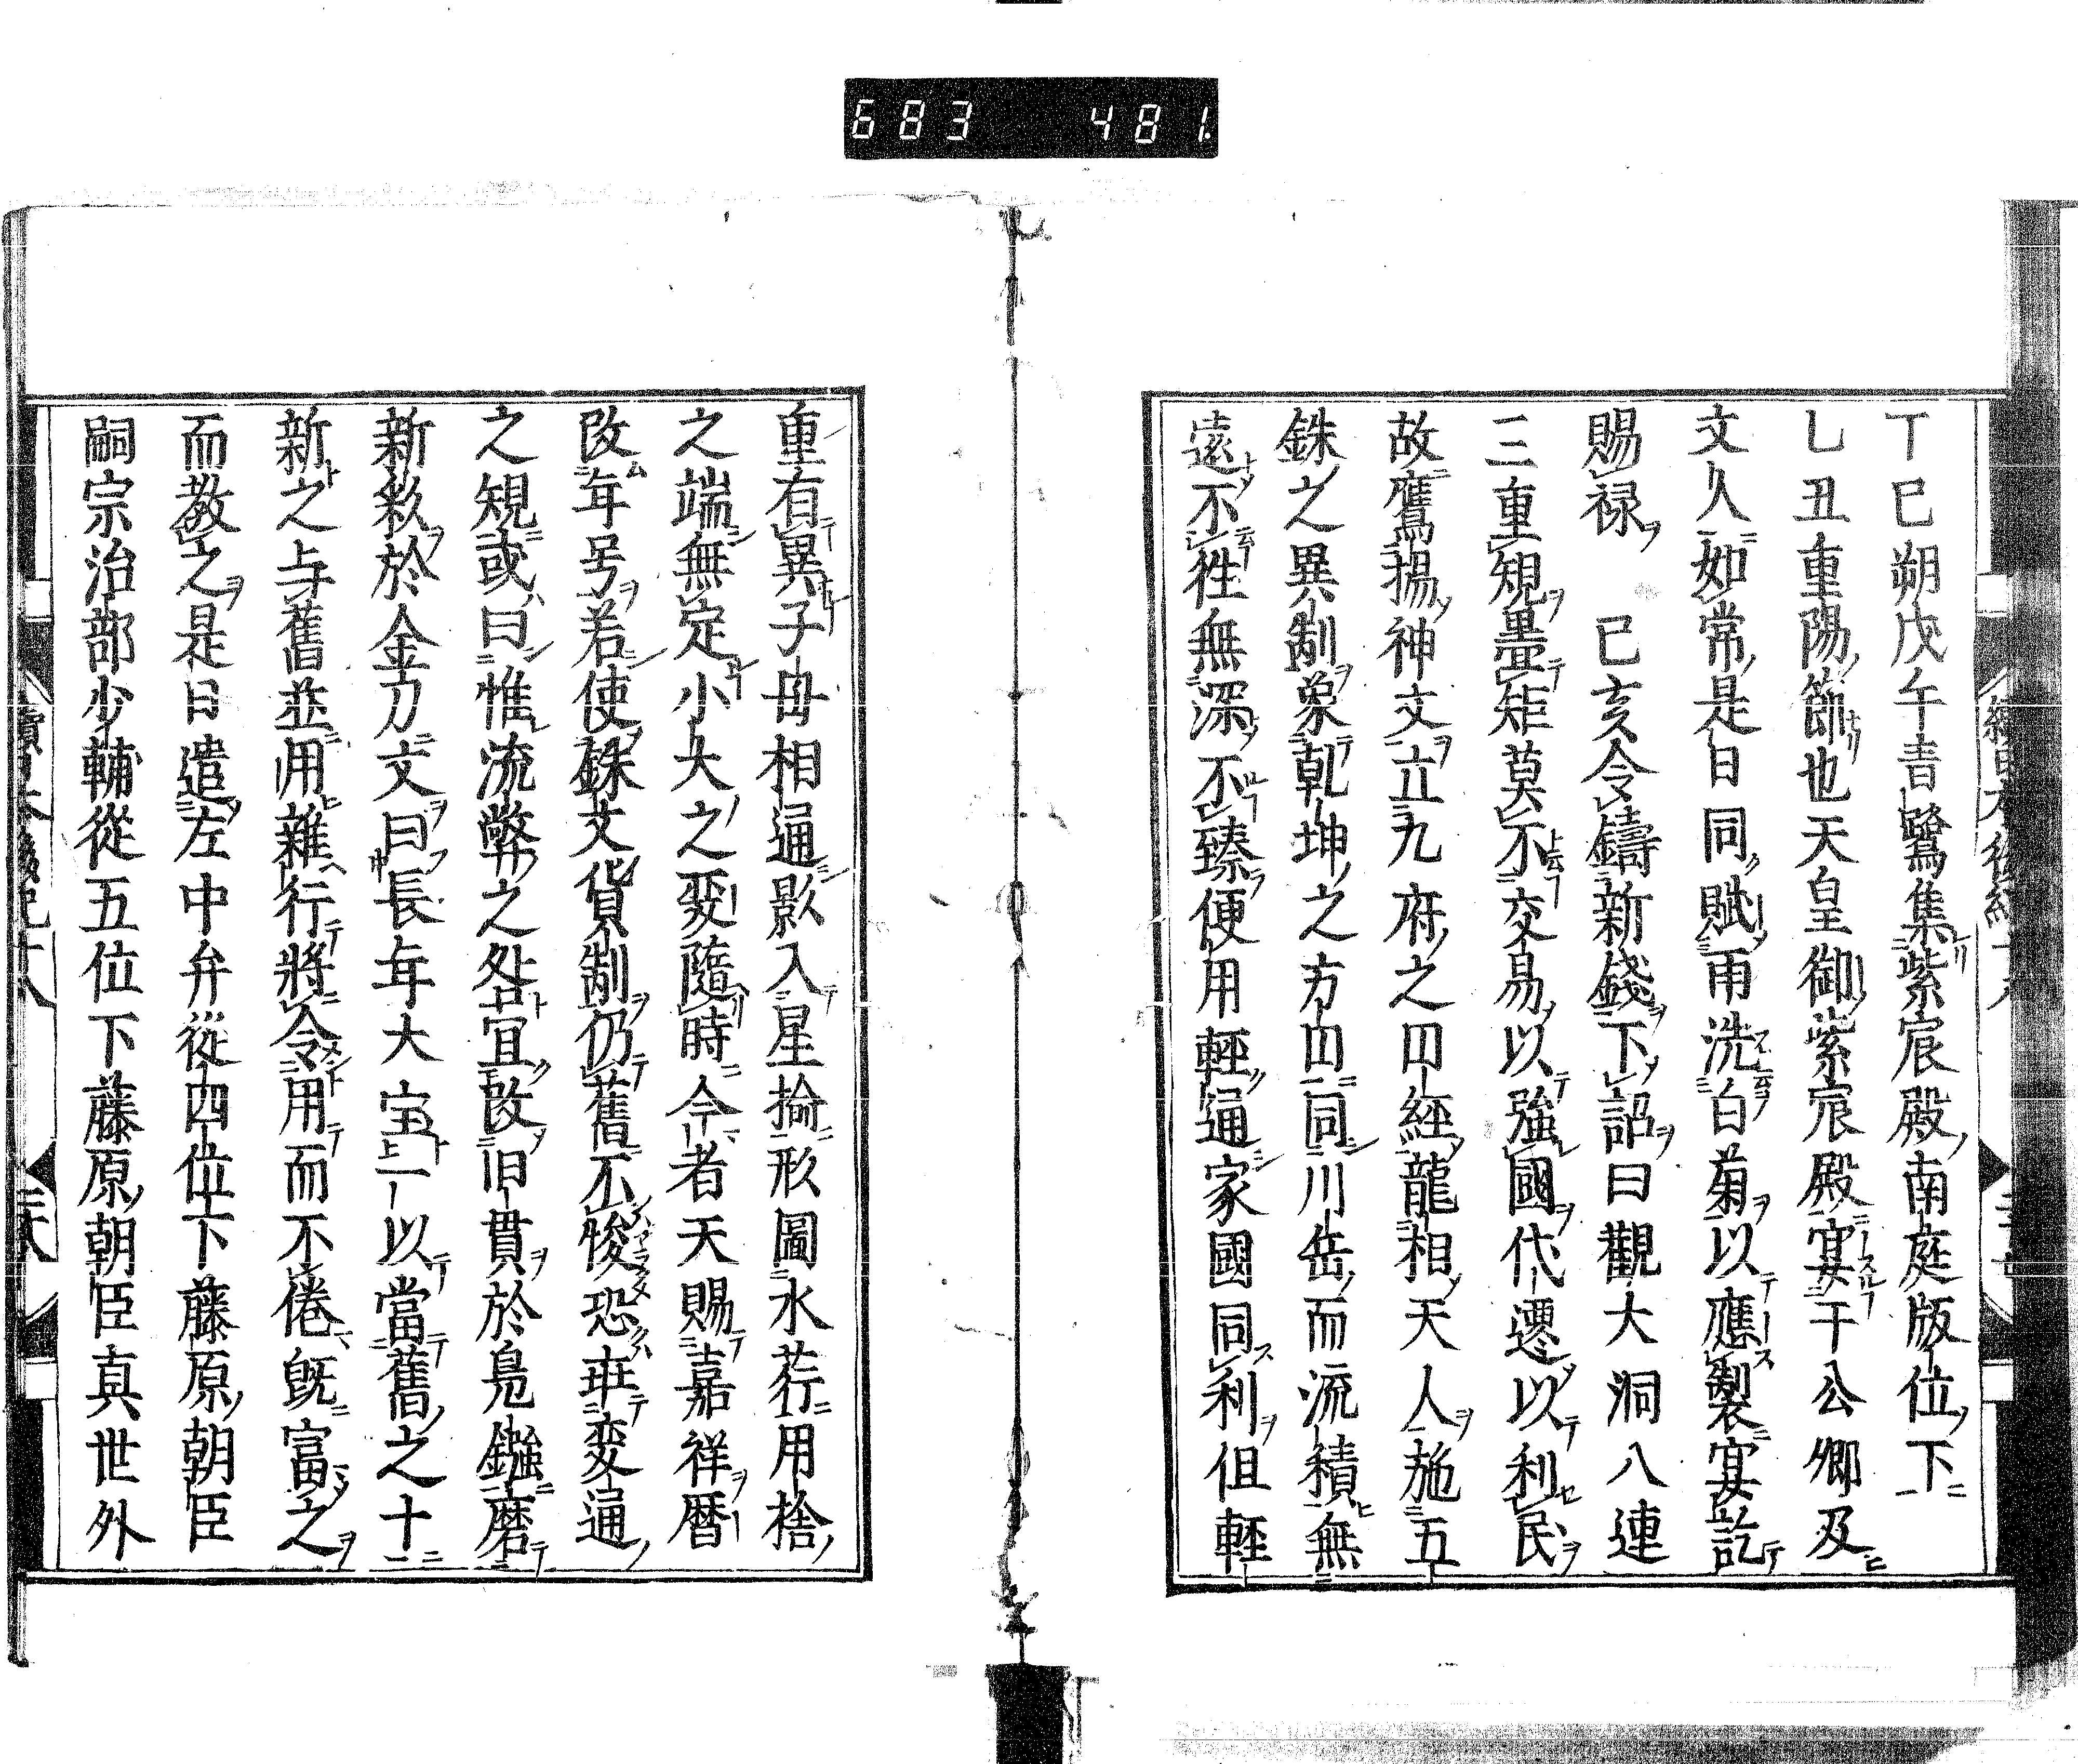 683 481.
丁巳朔戊午青鷺集紫宸殿南庭版位下
乚丑重陽節也天皇御紫宸殿宴于公卿及
文人如常是日同賦雨洗白菊以應製宴訖
賜禄 已亥令鑄新錢下詔曰觀大洞八連
三重規疊矩莫不交易以強國代遷以利民
故鷹揚神文立九府之囗經龍相天人施五
銖之異制象乾坤之方囗同川岳而流積無
遠不徃無深不臻便用輕通家國同利但輕
重有異子母相通影入星揄形圖水荇用捨
之端無定小大之変隨時今者天賜嘉祥曆
改年号若使銖文貨制仍舊不悛恐乖変通
之規或曰惟流弊之咎宜改旧貫於鳧鏹磨
新款於金刀文曰長年大宝一以當舊之十
新之与舊並用雜行將令用而不倦既富之
而教之是日遣左中弁從四位下藤原朝臣
嗣宗治部少輔從五位下藤原朝臣真世外